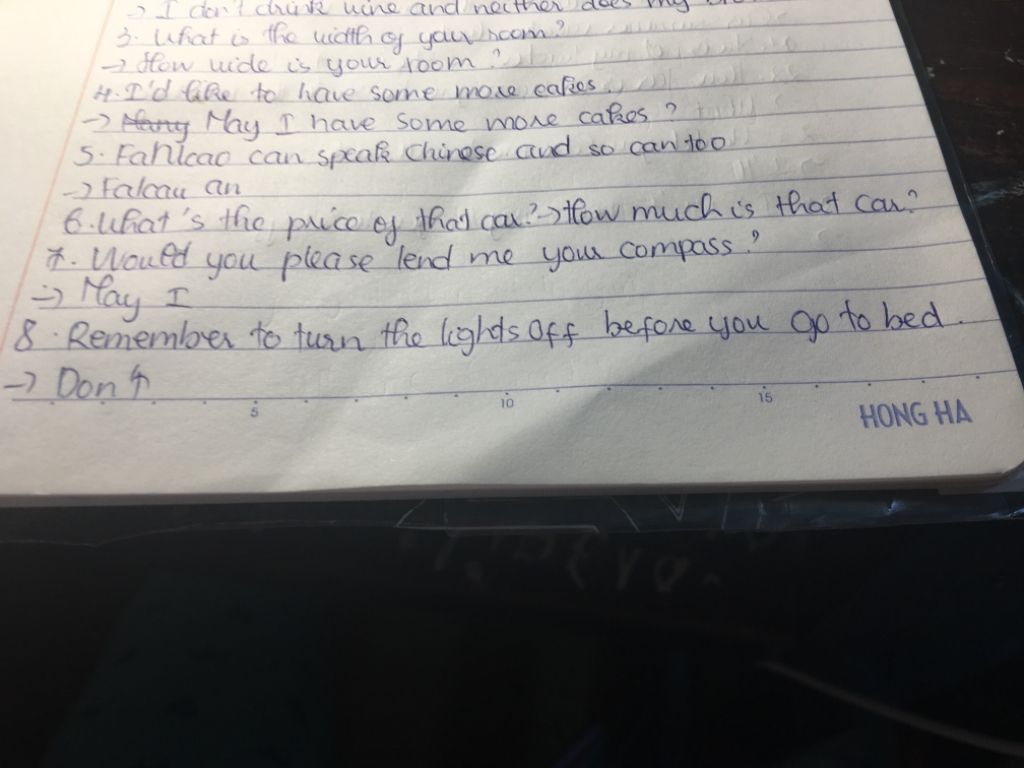 -> I don't drink wine and neither does my
3. What is the width of your room?
-> How wide is your room?
4. I'd like to have some more cakes.
-> Many May I have some more cakes?
5. can speak Chinese and so can too
-> an
6. What's the price of that car? -> How much is that car?
7. Would you please lend me your compass?
-> May I
8. Remember to turn the lights off before you go to bed.
-> Don't
5 10 15
HONG HA